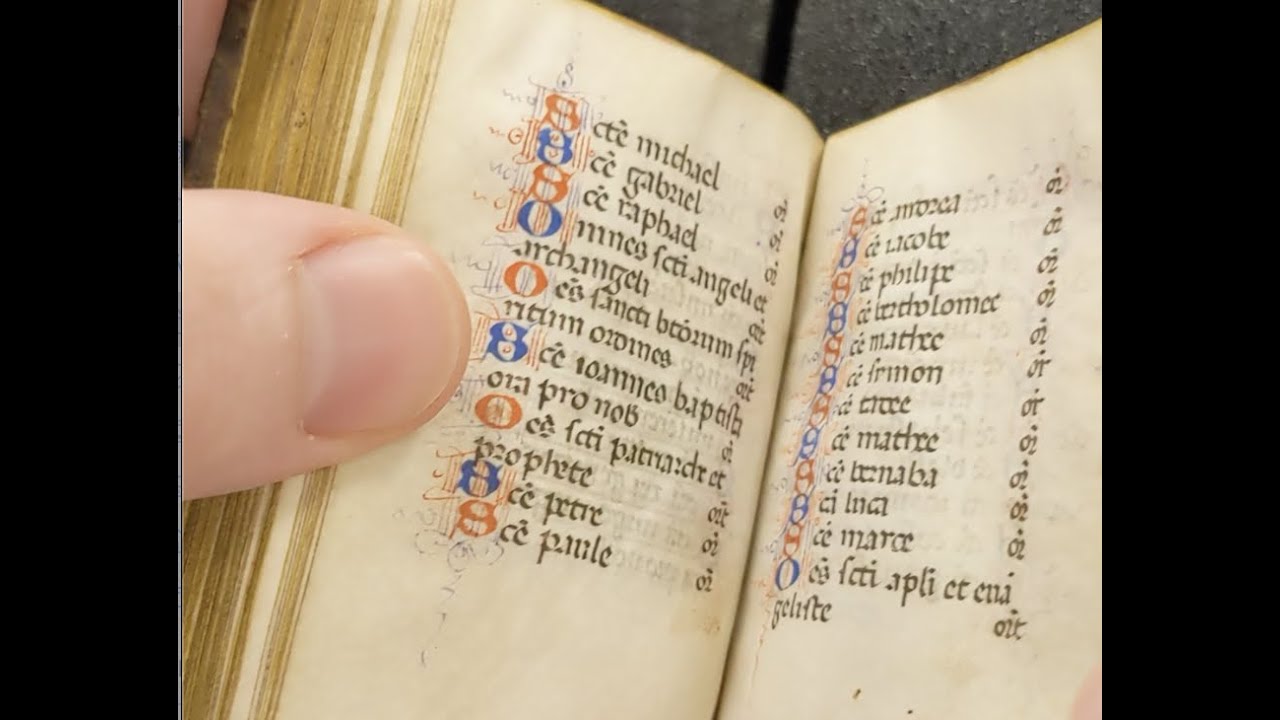 Sctē michael
Scē gabriel
Scē raphael
Omnes scti angeli et
archangeli
Oēs sancti btōrum spi
rituum ordines
Scē ioannes baptista
ora pro nob
Oēs scti patriarche et
prophete
Scē petre or
Scē paule or
Scē andrea or
Scē iacobe or
Scē philipe or
Scē bertholomee or
Scē mathee or
Scē simon or
Scē tatee or
Scē mathee or
Scē bernaba or
Scī luca or
Scē marce or
Oēs scti apli et euā
geliste ort